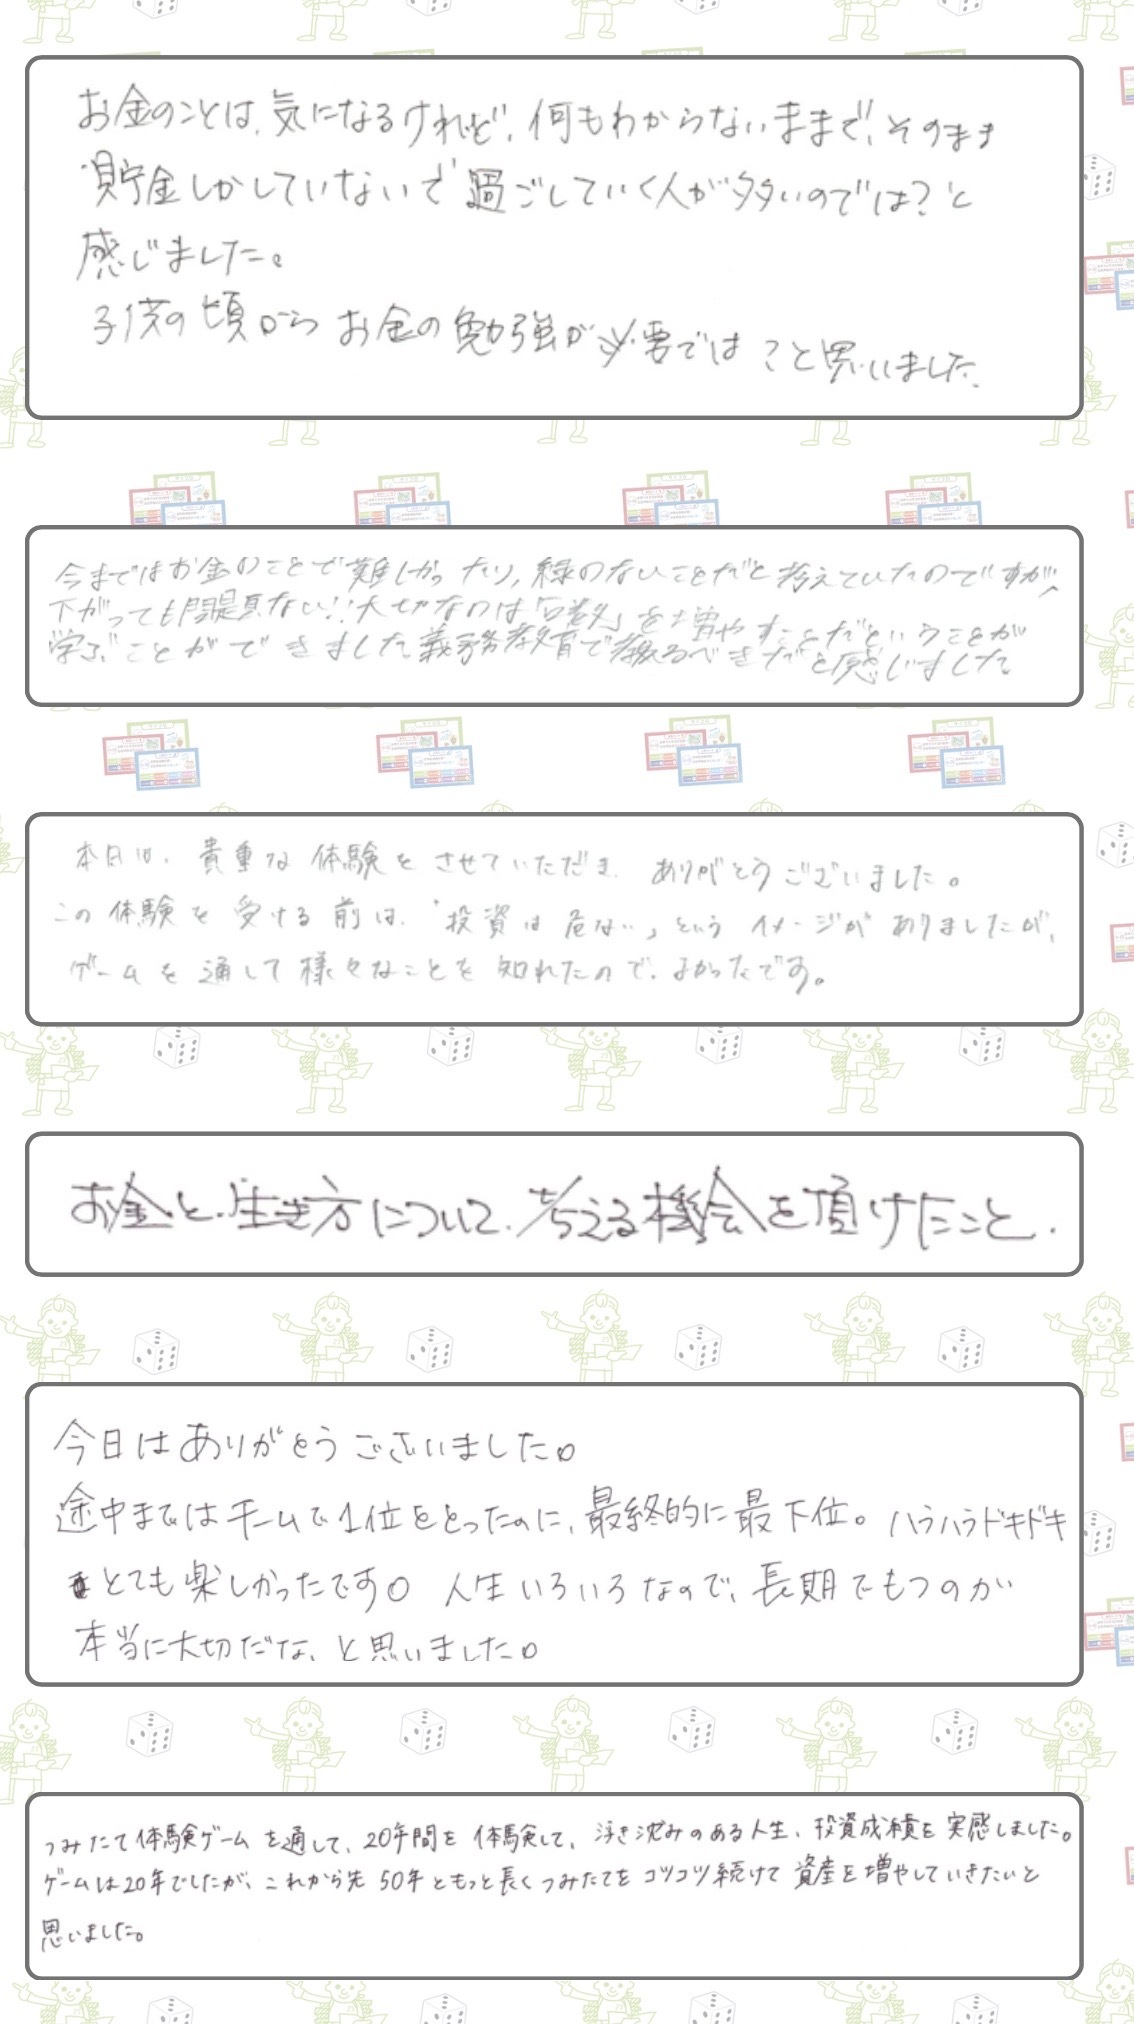 お金のことは、気になるけれど、何もわからないままで、そのまま
貯金しかしていないで過ごしていく人が多いのでは?と
感じました。
子供の頃からお金の勉強が必要では?こと思いました。
今まではお金のことで難しかったり、縁のないことだと考えていたのですが、
下がっても問題ない!!大切なのは「口数」を増やすことだということが
学ぶことができました義務教育で教えるべきだと感じました
本日は、貴重な体験をさせていただき、ありがとうございました。
この体験を受ける前は、「投資は危ない」というイメージがありましたが、
ゲームを通して様々なことを知れたので、よかったです。
お金と、生き方について、考える機会を頂けたこと。
今日はありがとうございました。
途中まではチームで1位をとったのに、最終的に最下位。ハラハラドキドキ
とても楽しかったです。人生いろいろなので、長期でもつのが
本当に大切だな、と思いました。
つみたて体験ゲームを通して、20年間を体験して、浮き沈みのある人生、投資成績を実感しました。
ゲームは20年でしたが、これから先50年ともっと長くつみたてをコツコツ続けて資産を増やしていきたいと
思いました。